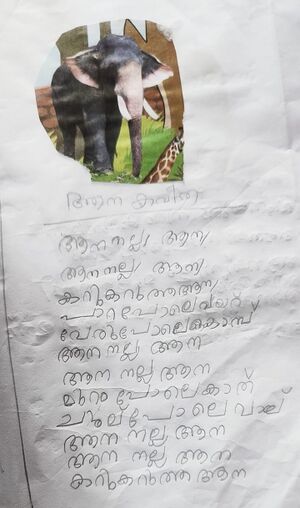 ആന കവിത
ആന നല്ല ആന
ആന നല്ല ആന
കറുകറുത്ത ആന
പാറപോലെ വയറ്
വേരുപോലെ കൊമ്പ്
ആന നല്ല ആന
ആന നല്ല ആന
മുറം പോലെ കാത്
ചൂല് പോലെ വാല്
ആന നല്ല ആന
ആന നല്ല ആന
കറുകറുത്ത ആന